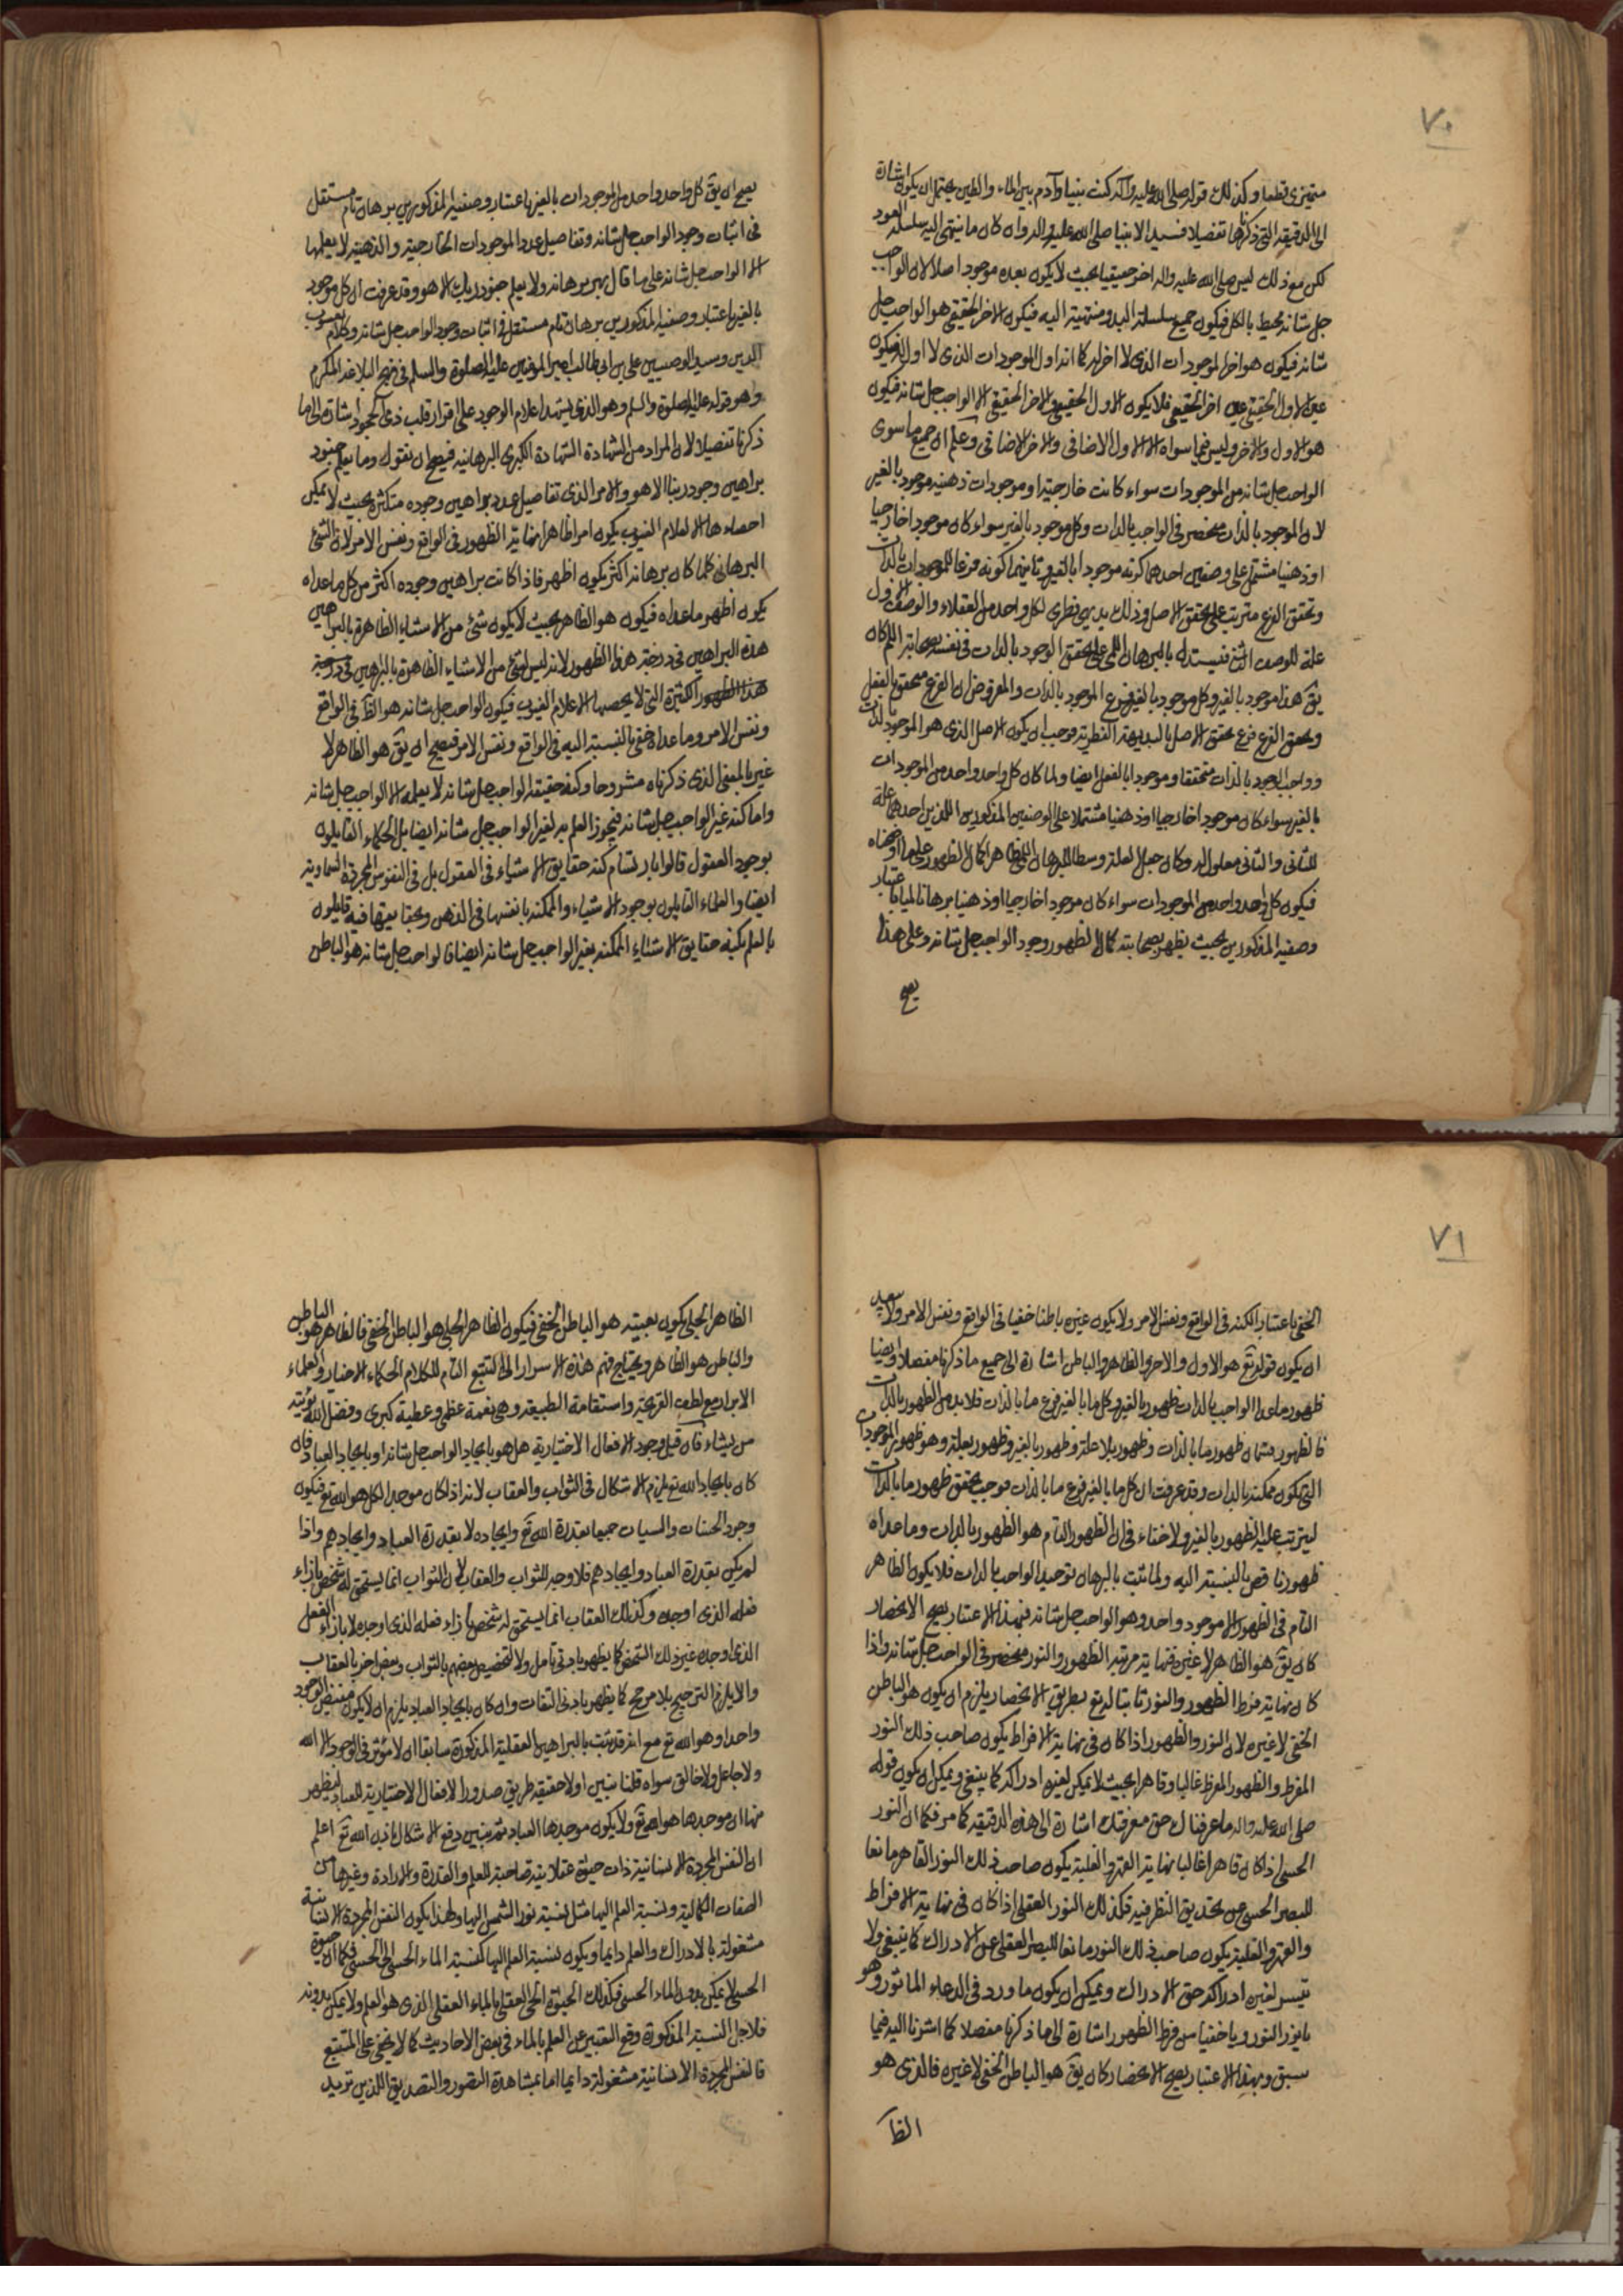 ٧٠
متميزى قطبها وكذلك قوله صلى الله عليه وآله كنت نبيا وآدم بين الماء والطين يحتمل ان يكون اشارة
الى الدقيقة التى ذكرناها تفصيلا فسيد الانبيا صلى الله عليه وآله وان كان ما ينتهى اليه سلسلة العود
لكن مع ذلك ليس صلى الله عليه وآله اخر حقيقيا بحيث لا يكون بعده موجود اصلا لان الواجب
جل شانه محيط بالكل فيكون جميع سلسلة البدو منتهية اليه فيكون الاخر الحقيقى هو الواجب جل
شانه فيكون هو اخر الموجودات الذى لا اخر له كما انه اول الموجودات الذى لا اول له فيكون
عين الاول الحقيقى عين اخر الحقيقى فلا يكون الاول الحقيقى والاخر الحقيقى الا الواجب جل شانه فيكون
هو الاول والاخر وليس فيما سواه الا الاول الاضافى والاخر الاضافى واعلم ان جميع ما سوى
الواجب جل شانه من الموجودات سواء كانت خارجية او موجودات ذهنية موجود بالغير
لان الموجود بالذات منحصر فى الواجب بالذات وكل موجود بالغير سواء كان موجودا خارجيا
او ذهنيا مشتمل على وصفين احدهما كونه موجودا بالغير وثانيهما كونه فرعا للموجود بالذات
وتحقق الفرع مترتب على تحقق الاصل وذلك بديهى فطرى لكل واحد من العقلاء والوصف الاول
علة للوصف الثانى فيستدل بالبرهان اللمى على تحقق الوجود بالذات فى نفسه بصحابة اللم كان
يق هذا موجود بالغير وكل موجود بالغير فرع الموجود بالذات والمفروض ان الفرع متحقق بالفعل
وتحقق الفرع فرع تحقق الاصل بالبديهة الفطرية فوجب ان يكون الاصل الذى هو الموجود بالذات
وواجب الوجود بالذات متحققا وموجودا بالفعل ايضا ولما كان كل واحد واحد من الموجودات
بالغير سواء كان موجودا خارجيا او ذهنيا مشتملا على الوصفين المذكورين اللذين احدهما علة
للثانى والثانى معلول له وكان جعل العلة وسطا للبرهان اللمى ظاهرا كمال الظهور على ما اوضحناه
فيكون كل واحد واحد من الموجودات سواء كان موجودا خارجيا او ذهنيا برهانا لميا باعتبار
وصفيه المذكورين بحيث يظهر بصحابته كمال الظهور وجود الواجب جل شانه وعلى هذا
يصح
يصح ان يق كل واحد واحد من الموجودات بالغير باعتبار وصفيه المذكورين برهان تام مستقل
فى اثبات وجود الواجب جل شانه وتفاصيل عدد الموجودات الخارجية والذهنية لا يعلمها
الا الواجب جل شانه على ما قال بهر برهانه ولا يعلم جنود ربك الا هو وقد عرفت ان كل موجود
بالغير باعتبار وصفيه المذكورين برهان تام مستقل فى اثبات وجود الواجب جل شانه وكلام يعسوب
الدين وسيد الوصيين على بن ابى طالب امير المؤمنين عليه الصلوة والسلم فى نهج البلاغه المكرم
وهو قوله عليه الصلوة والسلم وهو الذى يشهد اعلام الوجود على اقرار قلب ذى الجحود اشارة الى ما
ذكرنا تفصيلا لان المراد من الشهادة الشهادة الكبرى البرهانيه فيصح ان نقول وما يعلم جنود
براهين وجود ربنا الا هو والامر الذى تفاصيل عدد براهين وجوده متكثرة بحيث لا يمكن
احصاءها الا لعلام الغيوب يكون امرا ظاهرا بنهاية الظهور فى الواقع ونفس الامر لان الشئ
البرهانى كلما كان برهانه اكثر يكون اظهر فاذا كانت براهين وجوده اكثر من كل ما عداه
يكون اظهر ما عداه فيكون هو الظاهر بحيث لا يكون شئ من الاشياء الظاهرة بالبراهين
هذه البراهين فى درجة هذا الظهور لانه ليس لشئ من الاشياء الظاهرة بالبراهين فى درجة
هذا الظهور الكثيرة التى لا يحصيها الا علام الغيوب فيكون الواجب جل شانه هو الظآ فى الواقع
ونفس الامر وما عداه خفى بالنسبة اليه فى الواقع ونفس الامر فيصح ان يق هو الظاهر لا
غير بالمعنى الذى ذكرناه مشروحا وكنه حقيقة الواجب جل شانه لا يعلمه الا الواجب جل شانه
واما كنه غير الواجب جل شانه فيجوز العلم به لغير الواجب جل شانه ايضا بل الحكماء القايلون
بوجود العقول قالوا بارتسام كنه حقايق الاشياء فى العقول بل فى النفوس المجردة السماوية
ايضا والعلماء القايلون بوجود الاشياء والممكنة بانفسها فى الذهن وبحقايقها فيه قايلون
بالعلم بكنه حقايق الاشياء الممكنة بغير الواجب جل شانه ايضا فالواجب جل شانه هو الباطن
٧١
الخفى باعتبار الكنه فى الواقع ونفس الامر ولا يكون غيره باطنا خفيا فى الواقع ونفس الامر ولا يبعد
ان يكون قوله تع هو الاول والاخر والظاهر والباطن اشارة الى جميع ما ذكرنا مفصلا وايضا
ظهور ما عدا الواجب بالذات ظهور بالغير وكل ما بالغير فرع ما بالذات فلا بد من الظهور بالذات
فالظهور قسمان ظهور ما بالذات وظهور بلا علة وظهور بالغير وظهور بعلة وهو ظهور الموجودات
التى تكون ممكنة بالذات وقد عرفت ان كل ما بالغير فرع ما بالذات فوجب تحقق ظهور ما بالذات
ليترتب عليه الظهور بالغير ولا خفاء فى ان الظهور التام هو الظهور بالذات وما عداه
ظهور ناقص بالنسبة اليه ولما ثبت بالبرهان توحيد الواجب بالذات فلا يكون الظاهر
التام فى الظهور الا موجود واحد وهو الواجب جل شانه فبهذا الاعتبار يصح الانحصار
كان يق هو الظاهر لا غير فنهاية مرتبة الظهور والنور منحصر فى الواجب جل شانه واذا
كان نهاية فرط الظهور والنور ثابتا له تع بطريق الانحصار يلزم ان يكون هو الباطن
الخفى لا غير لان النور والظهور اذا كان فى نهاية الافراط يكون صاحب ذلك النور
المفرط والظهور المفرط غالبا وقاهرا بحيث لا يمكن لغيره ادراكه كما ينبغى ويمكن ان يكون قوله
صلى الله عليه وآله ما عرفناك حق معرفتك اشارة الى هذه الدقيقة كما مر فكما ان النور
الحسى اذا كان قاهرا غالبا نهاية القهر والغلبة يكون صاحب ذلك النور القاهر مانعا
للبصر الحسى عن تحديق النظر فيه فكذلك النور العقلى اذا كان فى نهاية الافراط
والقهر والغلبة يكون صاحب ذلك النور مانعا للبصر العقلى عن الادراك كما ينبغى ولا
يتيسر لغيره ادراكه حق الادراك ويمكن ان يكون ما ورد فى الدعاء الماثور وهو
يا نور النور ويا خفيا من فرط الظهور اشارة الى ما ذكرنا مفصلا كما اشرنا اليه فيما
سبق وبهذا الاعتبار يصح الانحصار كان يق هو الباطن الخفى لا غيره فالذى هو
الظآ
الظاهر الجلى يكون بعينه هو الباطن الخفى فيكون الظاهر الجلى هو الباطن الخفى فالظاهر هو الباطن
والباطن هو الظاهر ويحتاج فهم هذه الاسرار الى التتبع التام لكلام الحكماء الاخيار والعلماء
الابرار مع لطف القريحة واستقامة الطبيعة وهى نعمة عظمى وعطية كبرى وفضل الله يؤتيه
من يشاء فان قيل وجود الافعال الاختيارية هل هو بايجاد الواجب جل شانه او بايجاد العباد فان
كان بايجاد الله تع يلزم الاشكال فى الثواب والعقاب لانه اذا كان موجد الكل هو الله تع فيكون
وجود الحسنات والسيات جميعا بقدرة الله تع وايجاده لا بقدرة العباد وايجادهم واذا
لم يكن بقدرة العباد وايجادهم فلا وجه للثواب والعقاب لان الثواب انما يستحق له شخص بازاء
فعله الذى اوجده وكذلك العقاب انما يستحق له شخص بازاء فعله الذى اوجده لا بازاء الفعل
الذى اوجده غير ذلك الشخص كما يظهر بادنى تامل ولا لتخصيص بعضهم بالثواب وبعض اخر بالعقاب
والا يلزم الترجيح بلا مرجح كما يظهر بادنى التفات وان كان بايجاد العباد يلزم ان لا يكون مفيض الوجود
واحدا وهو الله تع مع انه قد ثبت بالبراهين العقلية المذكورة سابقا ان لا مؤثر فى الوجود الا الله
ولا جاعل ولا خالق سواه قلنا نبين اولا حقيقة طريق صدور الافعال الاختيارية للعباد ليظهر
منها ان موجدها هو الله تع ولا يكون موجدها العباد ثم نبين دفع الاشكال باذن الله تع اعلم
ان النفس المجردة الانسانية ذات حيوة عقلانية صاحبة للعلم والقدرة والارادة وغيرها من
الصفات الكمالية ونسبة العلم اليها مثل نسبة نور الشمس اليها ولهذا يكون النفس المجردة الانسانية
مشغولة بالادراك والعلم دايما ويكون نسبة العلم اليها كنسبة الماء الحسى الى الحسى فكما ان حيوة
الحسى لا يمكن بدون الماء الحسى فكذلك الحيوة الحى العقلى بالماء العقلى الذى هو العلم ولا يمكن بدونه
فلاجل النسبة المذكورة وقع التعبير عن العلم بالماء فى بعض الاحاديث كما لا يخفى على المتتبع
فالنفس المجردة الانسانية مشغولة دايما اما بمشاهدة التصور والتصديق اللذين تريد